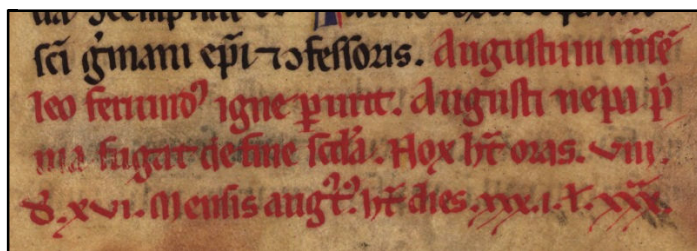 sci g̃mani ep̃i ⁊ ꝯfessoris. Augustum m̃sẽ
leo feruidoꝰ igne ꝑurit. Augusti nepa p̃
ma fugat de fine sc̃da. Nox ht̃ oras. viii.
d̓. xvi. Mensis augꝰtꝰ. ht̃ dies. xxx.i. l. xxx.